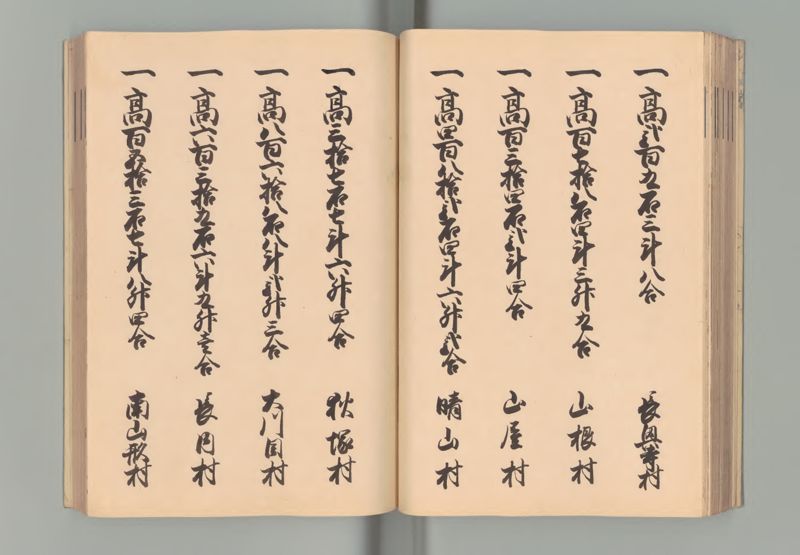 一高弐百九石三斗八合　長興寺村
一高百七拾八石四斗三升九合　山根村
一高百三拾四石弐斗四合　山屋村
一高四百八拾弐石四斗六升弐合　晴山村
一高三拾七石七斗六升四合　狄塚村
一高八百六拾八石八斗弐升三合　大川目村
一高六百三拾九石六斗九升壱合　長内村
一高百五拾三石七斗八升四合　南山形村